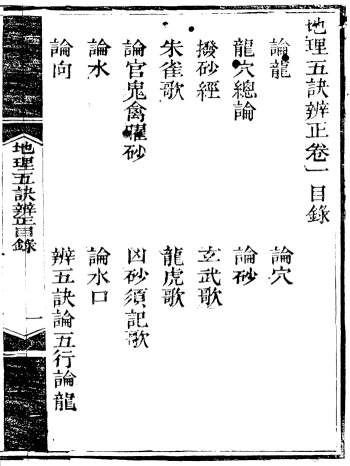 地理五訣辨正卷一目錄
論龍　論穴
龍穴總論　論砂
撥砂經　玄武歌
朱雀歌　龍虎歌
論官鬼禽曜砂　凶砂須記歌
論水　論水口
論向　辨五訣論五行論龍
地理五訣辨正目錄　一